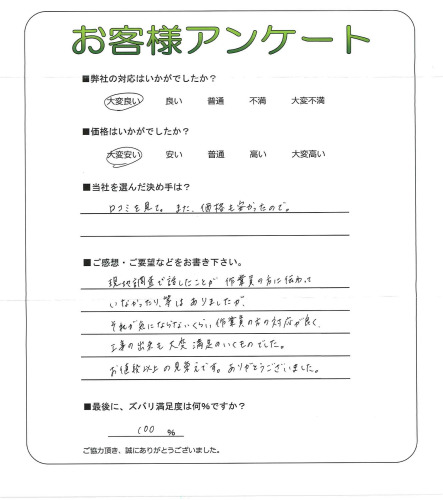 お客様アンケート
■弊社の対応はいかがでしたか？
大変良い 良い 普通 不満 大変不満
■価格はいかがでしたか？
大変安い 安い 普通 高い 大変高い
■当社を選んだ決め手は？
口コミを見て。また、価格も安かったので。
■ご感想・ご要望などをお書き下さい。
現地調査で話したことが 作業員の方に伝わって
いなかったり、等はありましたが、
それが気にならないくらい、作業員の方の対応が良く、
工事の出来も大変満足のいくものでした。
お値段以上の見栄えです。ありがとうございました。
■最後に、ズバリ満足度は何%ですか？
100 %
ご協力頂き、誠にありがとうございました。